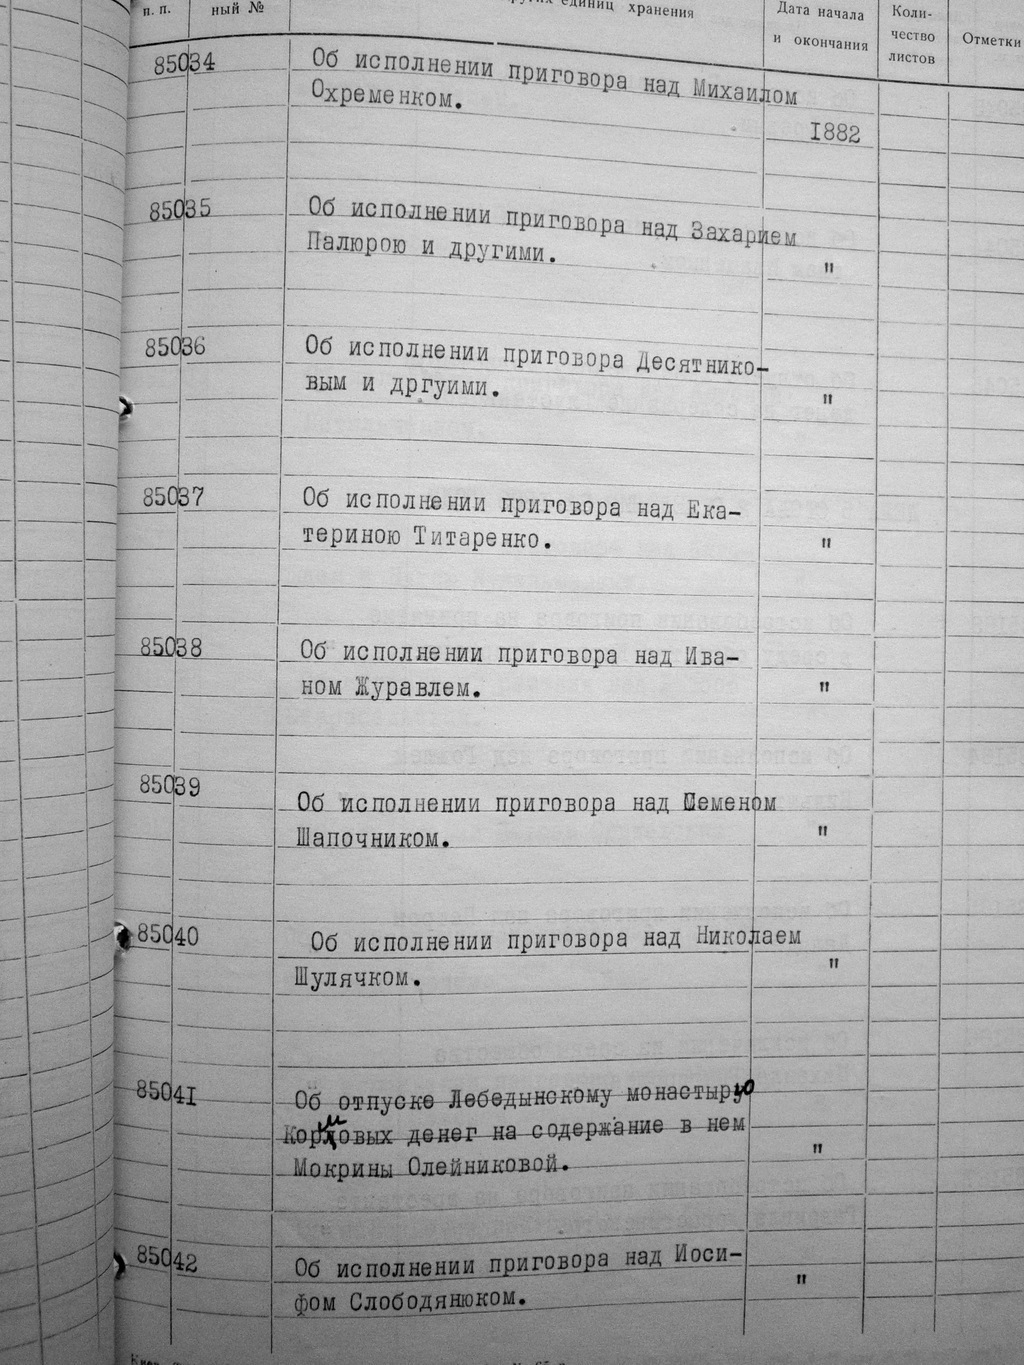 п. п.
ный №
единиц хранения
Дата начала
и окончания
Коли-
чество
листов
Отметки
85034
Об исполнении приговора над Михаилом
Охременком.
1882
85035
Об исполнении приговора над Захарием
Палюрою и другими.
"
85036
Об исполнении приговора Десятнико-
вым и дргуими.
"
85037
Об исполнении приговора над Ека-
териною Титаренко.
"
85038
Об исполнении приговора над Ива-
ном Журавлем.
"
85039
Об исполнении приговора над Семеном
Шапочником.
"
85040
Об исполнении приговора над Николаем
Шулячком.
"
85041
Об отпуске Лебедынскому монастырю
Кормовых денег на содержание в нем
Мокрины Олейниковой.
"
85042
Об исполнении приговора над Иоси-
фом Слободянюком.
"